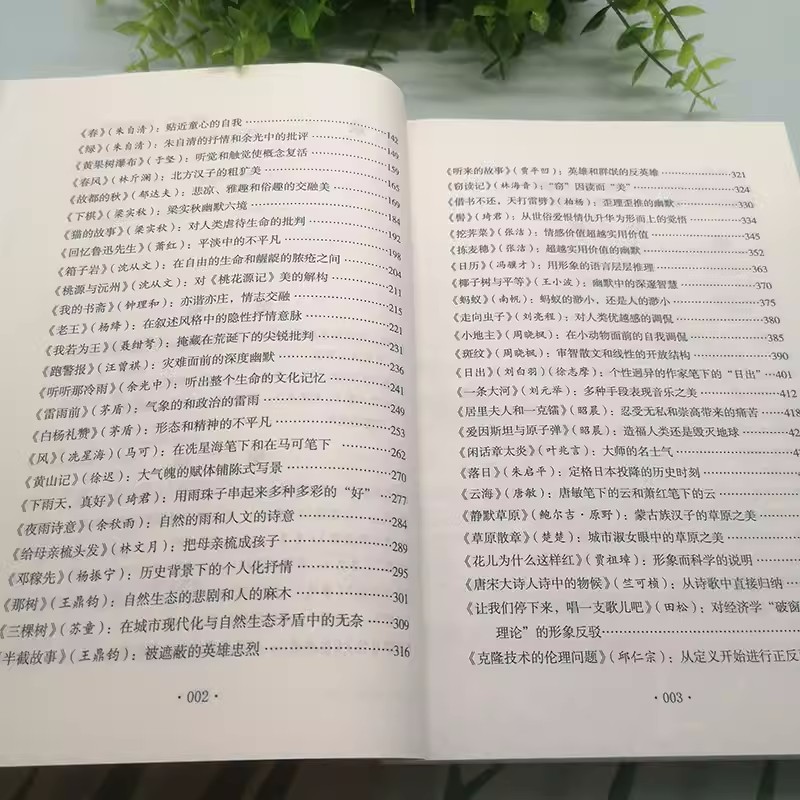 《春》(朱自清)：贴近童心的自我……142
《绿》(朱自清)：朱自清的抒情和余光中的批评……149
《黄果树瀑布》(于坚)：听觉和触觉使概念复活……159
《春风》(林斤澜)：北方汉子的粗犷美……165
《故都的秋》(郁达夫)：悲凉、雅趣和俗趣的交融美……168
《下棋》(梁实秋)：梁实秋幽默六境……184
《猫的故事》(梁实秋)：对人类虐待生命的批判……192
《回忆鲁迅先生》(萧红)：平淡中的不平凡……198
《箱子岩》(沈从文)：在自由的生命和龌龊的脓疮之间……204
《桃源与沅州》(沈从文)：对《桃花源记》美的解构……211
《我的书斋》(钟理和)：亦谐亦庄，情志交融……215
《老王》(杨绛)：在叙述风格中的隐性抒情意脉……221
《我若为王》(聂绀弩)：掩藏在荒诞下的尖锐批判……231
《跑警报》(汪曾祺)：灾难面前的深度幽默……236
《听听那冷雨》(余光中)：听出整个生命的文化记忆……241
《雷雨前》(茅盾)：气象的和政治的雷雨……249
《白杨礼赞》(茅盾)：形态和精神的不平凡……253
《风》(冼星海)(马可)：在冼星海笔下和在马可笔下……262
《黄山记》(徐迟)：大气魄的赋体铺陈式写景……270
《下雨天，真好》(琦君)：用雨珠子串起来多种多彩的“好”……277
《夜雨诗意》(余秋雨)：自然的雨和人文的诗意……284
《给母亲梳头发》(林文月)：把母亲梳成孩子……289
《邓稼先》(杨振宁)：历史背景下的个人化抒情……295
《那树》(王鼎钧)：自然生态的悲剧和人的麻木……301
《三棵树》(苏童)：在城市现代化与自然生态矛盾中的无奈……309
半截故事》(王鼎钧)：被遮蔽的英雄忠烈……316
·002·
《听来的故事》(贾平凹)：英雄和群氓的反英雄……321
《窃读记》(林海音)：“窃”因读而“美”……324
《借书不还，天打雷劈》(柏杨)：歪理歪推的幽默……330
《髻》(琦君)：从世俗爱恨情仇升华为形而上的觉悟……334
《挖荠菜》(张洁)：情感价值超越实用价值……345
《拣麦穗》(张洁)：超越实用价值的幽默……352
《日历》(冯骥才)：用形象的语言层层推理……363
《椰子树与平等》(王小波)：幽默中的深邃智慧……370
《蚂蚁》(南帆)：蚂蚁的渺小，还是人的渺小……375
《走向虫子》(刘亮程)：对人类优越感的调侃……380
《小地主》(周晓枫)：在小动物面前的自我调侃……385
《斑纹》(周晓枫)：审智散文和线性的开放结构……390
《日出》(刘白羽)(徐志摩)：个性迥异的作家笔下的“日出”……401
《一条大河》(刘元举)：多种手段表现音乐之美……412
《居里夫人和一克镭》(昭晨)：忍受无私和崇高带来的痛苦……418
《爱因斯坦与原子弹》(昭晨)：造福人类还是毁灭地球……42
《闲话章太炎》(叶兆言)：大师的名士气……
《落日》(朱启平)：定格日本投降的历史时刻……
《云海》(唐敏)：唐敏笔下的云和萧红笔下的云……
《静默草原》(鲍尔吉·原野)：蒙古族汉子的草原之美……
《草原散章》(楚楚)：城市淑女眼中的草原之美……
《花儿为什么这样红》(贾祖璋)：形象而科学的说明……
《唐宋大诗人诗中的物候》(竺可桢)：从诗歌中直接归纳……
《让我们停下来，唱一支歌儿吧》(田松)：对经济学“破窗
理论”的形象反驳……
《克隆技术的伦理问题》(邱仁宗)：从定义开始进行正反
·003·